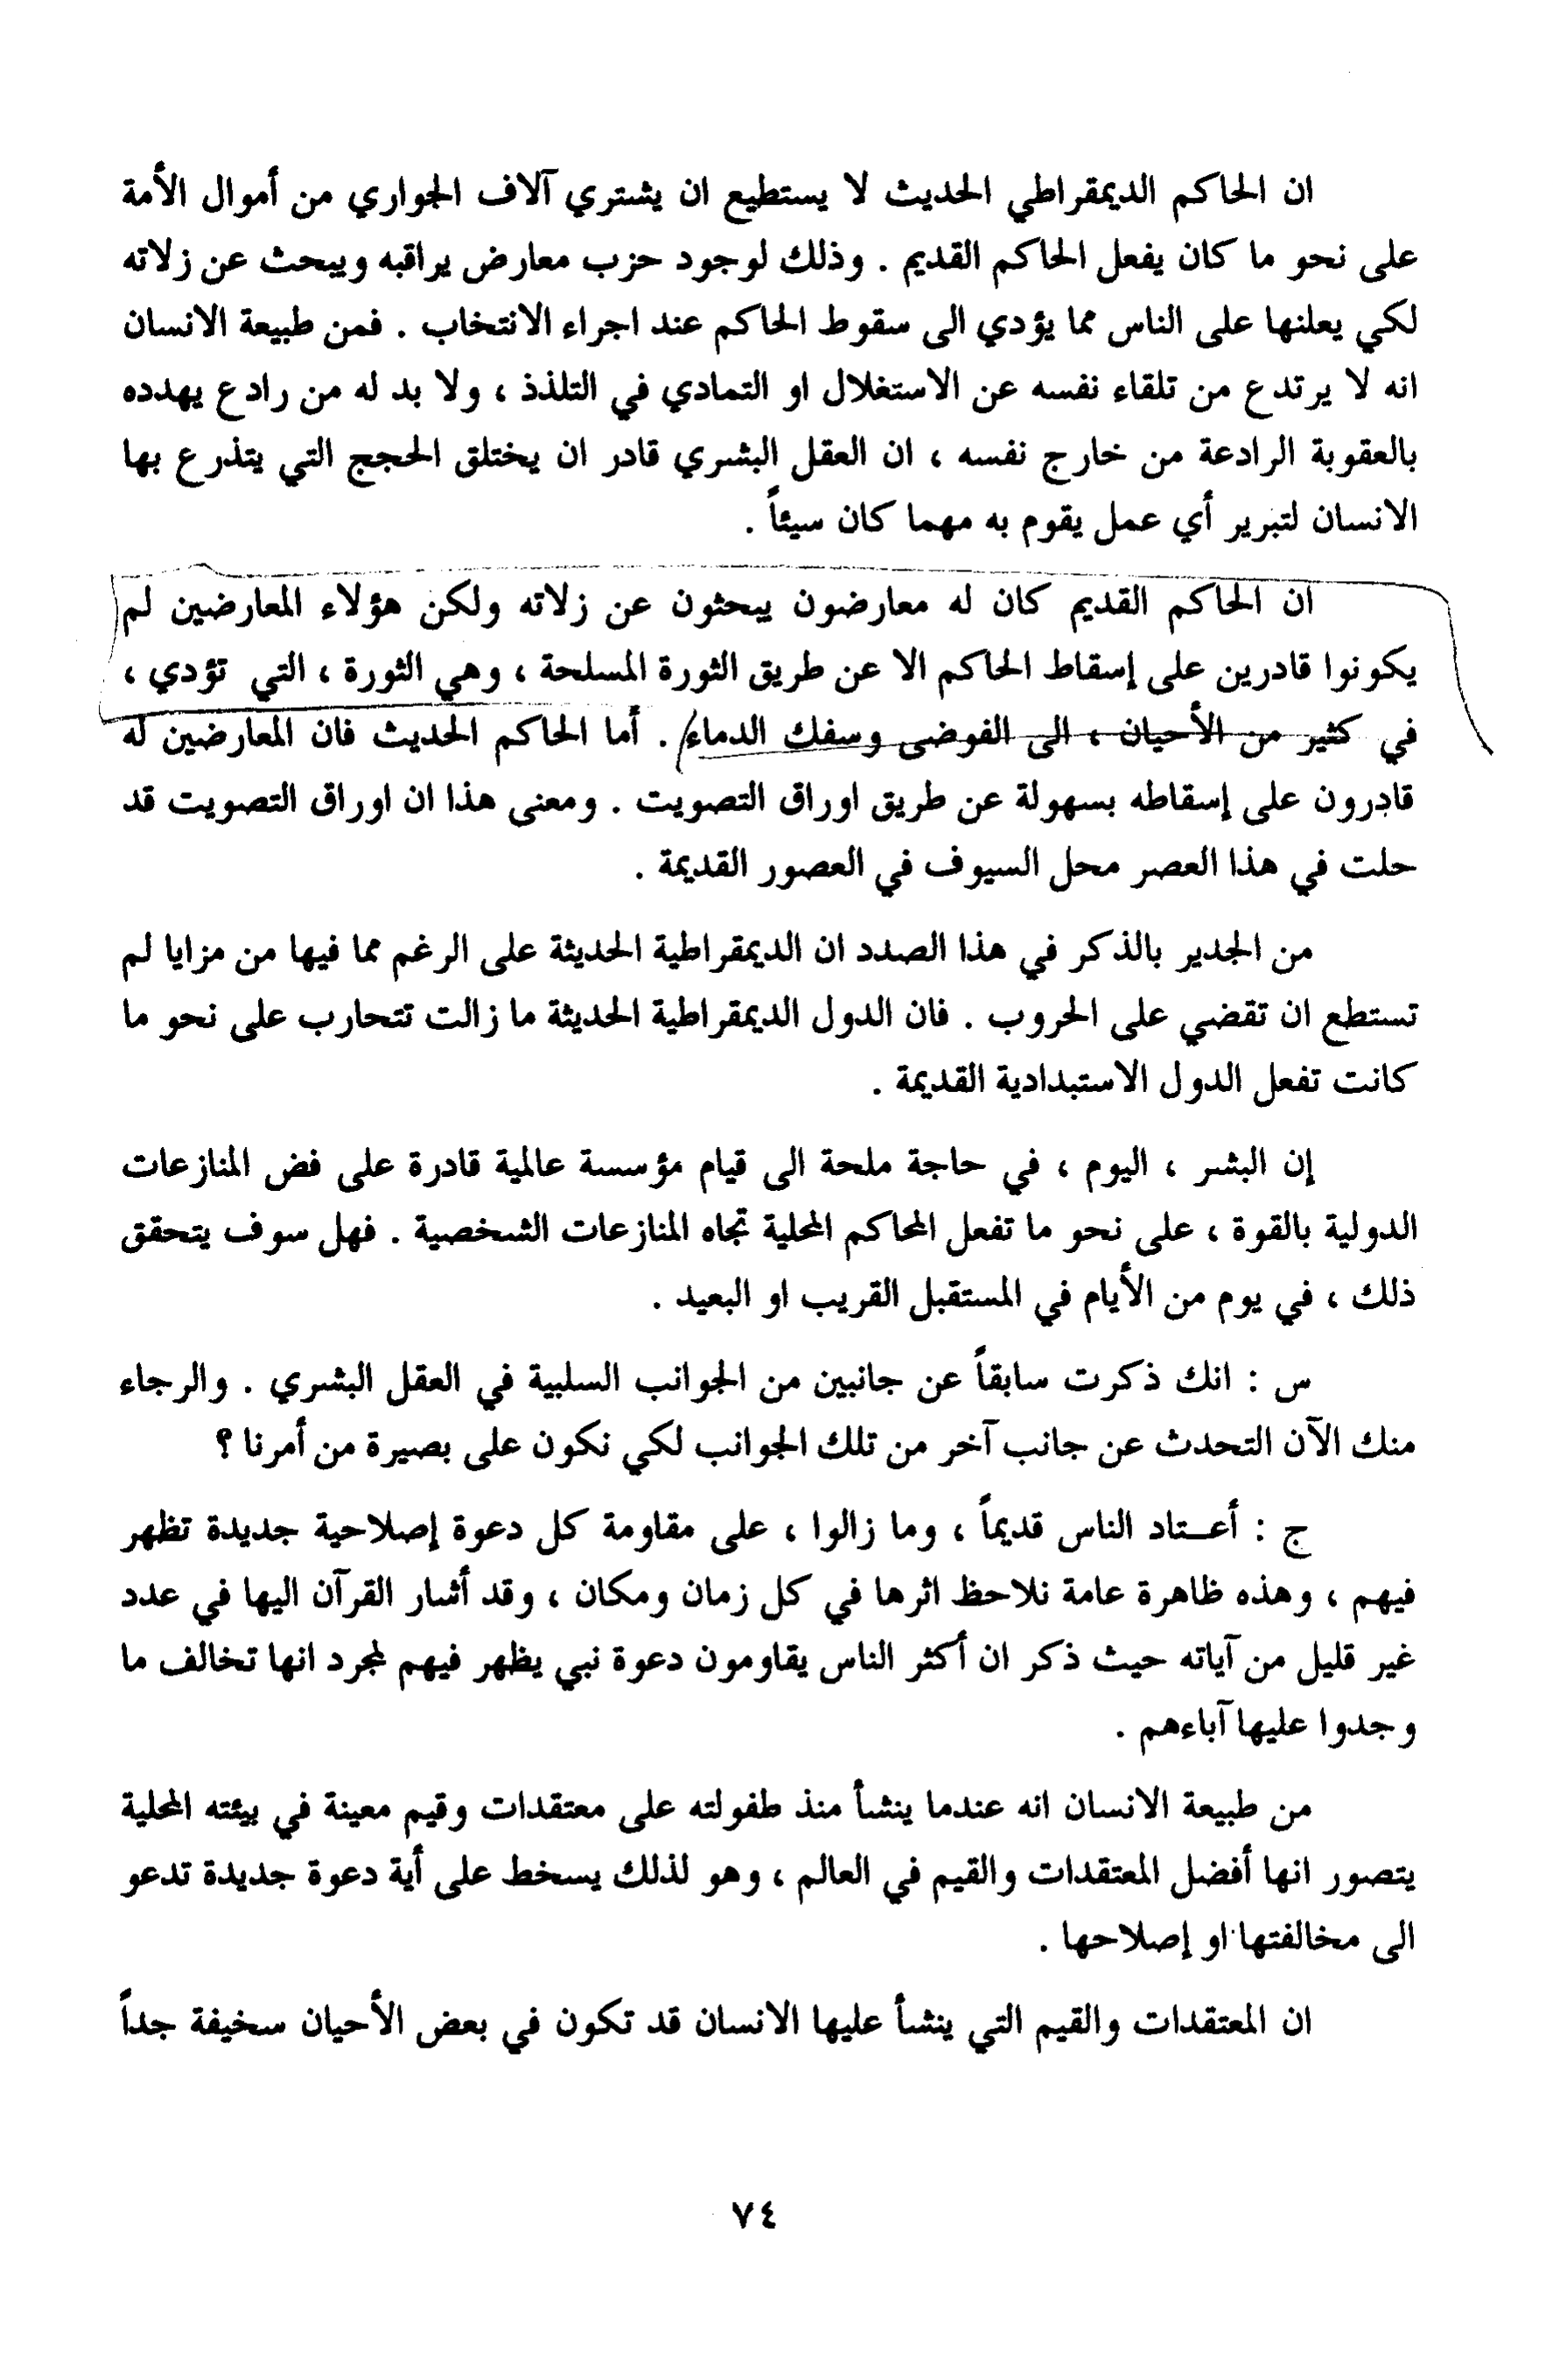 ان الحاكم الديمقراطي الحديث لا يستطيع ان يشتري آلاف الجواري من أموال الأمة
على نحو ما كان يفعل الحاكم القديم . وذلك لوجود حزب معارض يراقبه ويبحث عن زلاته
لكي يعلنها على الناس مما يؤدي الى سقوط الحاكم عند اجراء الانتخاب . فمن طبيعة الانسان
انه لا يرتدع من تلقاء نفسه عن الاستغلال او التمادي في التلذذ ، ولا بد له من رادع يهدده
بالعقوبة الرادعة من خارج نفسه ، ان العقل البشري قادر ان يختلق الحجج التي يتذرع بها
الانسان لتبرير أي عمل يقوم به مهما كان سيئاً .
ان الحاكم القديم كان له معارضون يبحثون عن زلاته ولكن هؤلاء المعارضين لم
يكونوا قادرين على إسقاط الحاكم الا عن طريق الثورة المسلحة ، وهي الثورة ، التي تؤدي ،
في كثير من الأحيان ، الى الفوضى وسفك الدماء . أما الحاكم الحديث فان المعارضين له
قادرون على إسقاطه بسهولة عن طريق اوراق التصويت . ومعنى هذا ان اوراق التصويت قد
حلت في هذا العصر محل السيوف في العصور القديمة .
من الجدير بالذكر في هذا الصدد ان الديمقراطية الحديثة على الرغم مما فيها من مزايا لم
تستطع ان تقضي على الحروب . فان الدول الديمقراطية الحديثة ما زالت تتحارب على نحو ما
كانت تفعل الدول الاستبدادية القديمة .
إن البشر ، اليوم ، في حاجة ملحة الى قيام مؤسسة عالمية قادرة على فض المنازعات
الدولية بالقوة ، على نحو ما تفعل المحاكم المحلية تجاه المنازعات الشخصية . فهل سوف يتحقق
ذلك ، في يوم من الأيام في المستقبل القريب او البعيد .
س : انك ذكرت سابقاً عن جانبين من الجوانب السلبية في العقل البشري . والرجاء
منك الآن التحدث عن جانب آخر من تلك الجوانب لكي نكون على بصيرة من أمرنا ؟
ج : أعـتاد الناس قديماً ، وما زالوا ، على مقاومة كل دعوة إصلاحية جديدة تظهر
فيهم ، وهذه ظاهرة عامة نلاحظ اثرها في كل زمان ومكان ، وقد أشار القرآن اليها في عدد
غير قليل من آياته حيث ذكر ان أكثر الناس يقاومون دعوة نبي يظهر فيهم لمجرد انها تخالف ما
وجدوا عليها آباءهم .
من طبيعة الانسان انه عندما ينشأ منذ طفولته على معتقدات وقيم معينة في بيئته المحلية
يتصور انها أفضل المعتقدات والقيم في العالم ، وهو لذلك يسخط على أية دعوة جديدة تدعو
الى مخالفتها او إصلاحها .
ان المعتقدات والقيم التي ينشأ عليها الانسان قد تكون في بعض الأحيان سخيفة جداً
٧٤